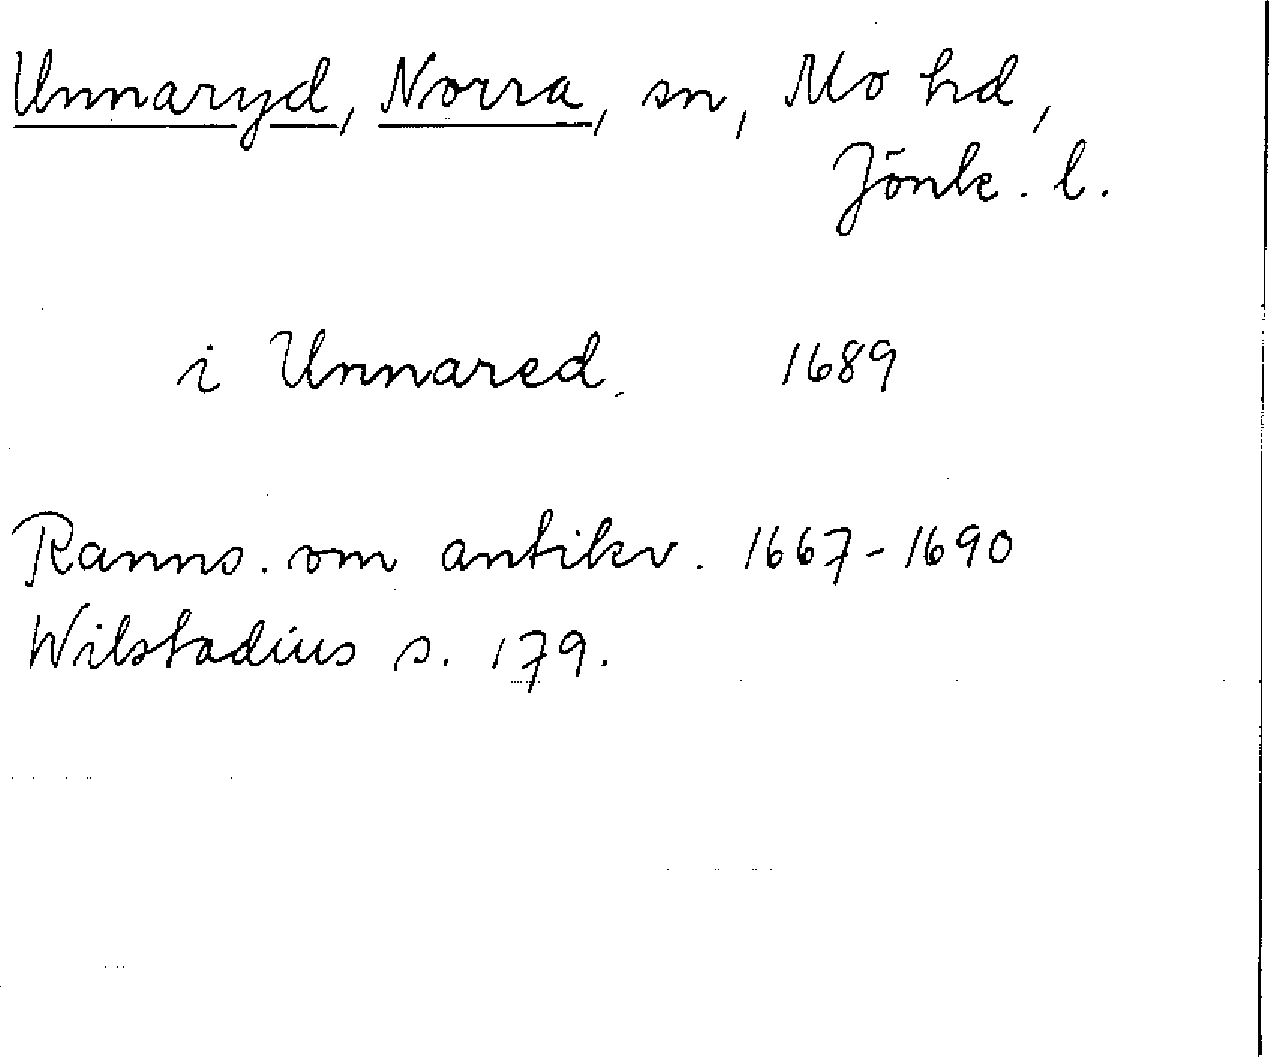 Unnaryd, Norra, sn, Mo hd,
Jönk. l.
i Unnared. 1689
Ranns. om antikv. 1667-1690
Wilstadius s. 179.